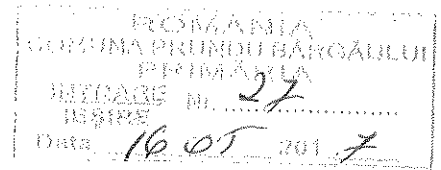 ROMÂNIA
COMUNA PRUNDU BÂRGĂULUI
PRIMĂRIA
INTRARE Nr. 27
IEȘIRE
Data 16 05 2017